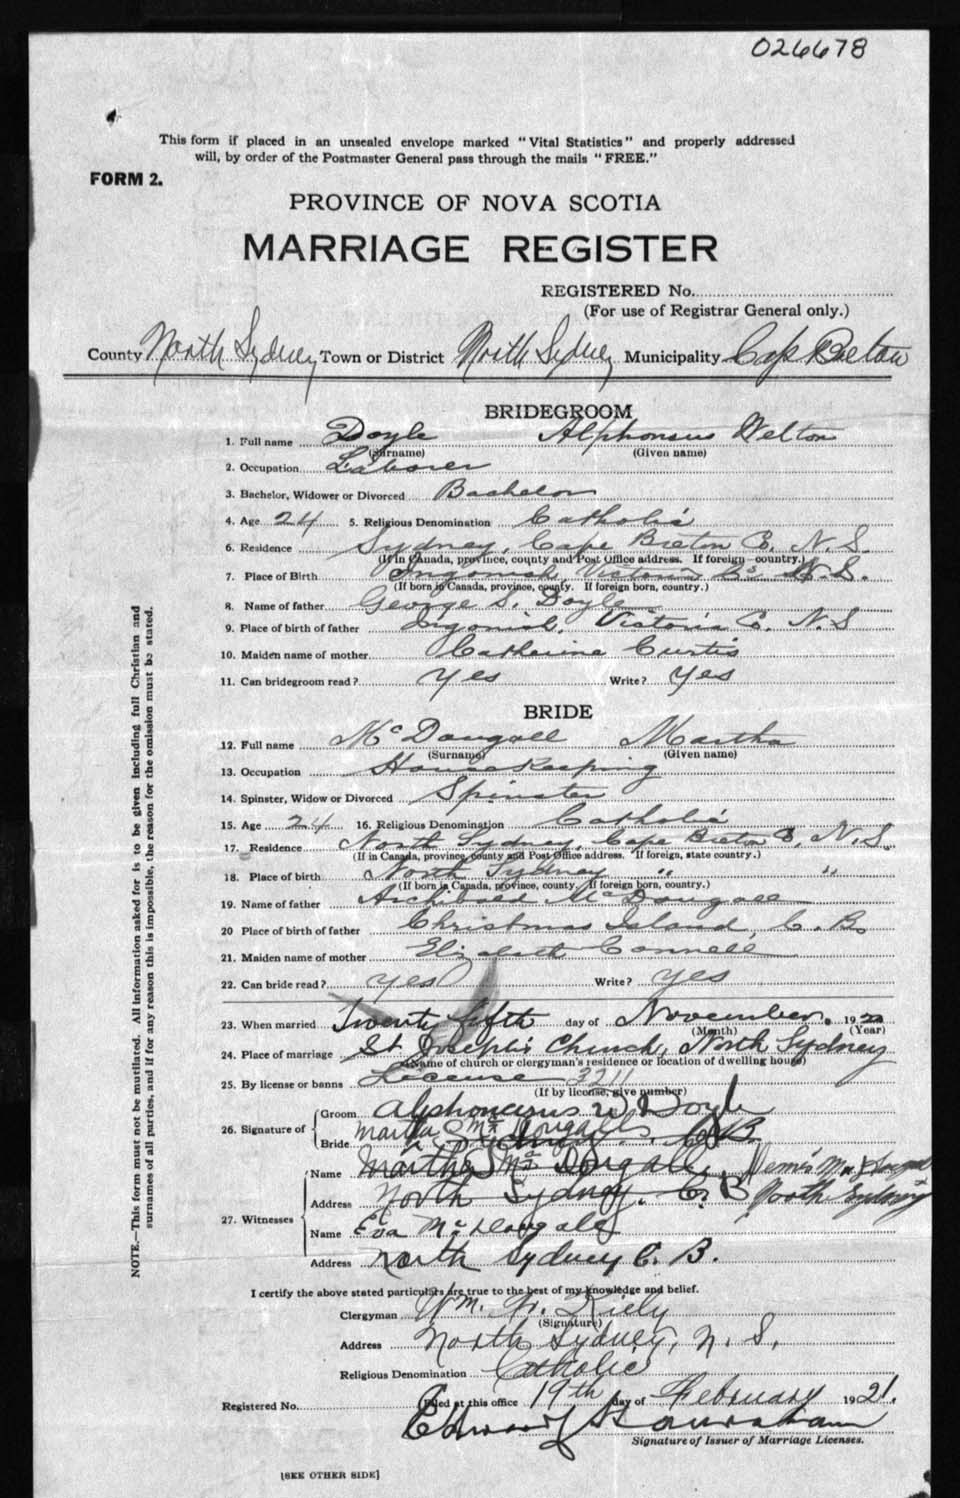 026678
This form if placed in an unsealed envelope marked "Vital Statistics" and properly addressed
will, by order of the Postmaster General pass through the mails "FREE."
FORM 2.
PROVINCE OF NOVA SCOTIA
MARRIAGE REGISTER
REGISTERED No.
(For use of Registrar General only.)
County North Sydney Town or District North Sydney Municipality Cape Breton
BRIDEGROOM
1. Full name Doyle Alphonsus Welton
(Surname) (Given name)
2. Occupation Laborer
3. Bachelor, Widower or Divorced Bachelor
4. Age 24 5. Religious Denomination Catholic
6. Residence Sydney, Cape Breton Co. N.S.
(If in Canada, province, county and Post Office address. If foreign country.)
7. Place of Birth Ingonish, Victoria Co. N.S.
(If born in Canada, province, county. If foreign born, country.)
8. Name of father George S. Doyle
9. Place of birth of father Ingonish, Victoria Co. N.S
10. Maiden name of mother Catherine Curtis
11. Can bridegroom read? Yes Write? Yes
BRIDE
12. Full name McDougall Martha
(Surname) (Given name)
13. Occupation Housekeeping
14. Spinster, Widow or Divorced Spinster
15. Age 24 16. Religious Denomination Catholic
17. Residence North Sydney, Cape Breton Co, N.S.
(If in Canada, province, county and Post Office address. If foreign, state country.)
18. Place of birth North Sydney " "
(If born in Canada, province, county If foreign born, country.)
19. Name of father Archibald McDougall
20 Place of birth of father Christmas Island, C.B.
21. Maiden name of mother Elizabeth Connell
22. Can bride read? yes Write? yes
23. When married Twenty fifth day of November. 1920
(Month) (Year)
24. Place of marriage St Joseph's Church, North Sydney
(Name of church or clergyman's residence or location of dwelling house)
25. By license or banns License 3211
(If by license, give number)
26. Signature of
Groom Alphonsus W Doyle
Bride Martha Mc Dougall
C B
27. Witnesses
Name Martha Mc Dougall, McDougall
Address North Sydney, C. B North Sydney
Name Eva McDougall
Address North Sydney C. B.
I certify the above stated particulars are true to the best of my knowledge and belief.
Clergyman Wm. Kiely
(Signature)
Address North Sydney, N. S,
Religious Denomination Catholic
Registered No. Filed at this office 19th day of February 1921.
Edward
Signature of Issuer of Marriage Licenses.
[SEE OTHER SIDE]
NOTE.—This form must not be mutilated. All information asked for is to be given including full Christian and
surnames of all parties, and if for any reason this is impossible, the reason for the omission must be stated.